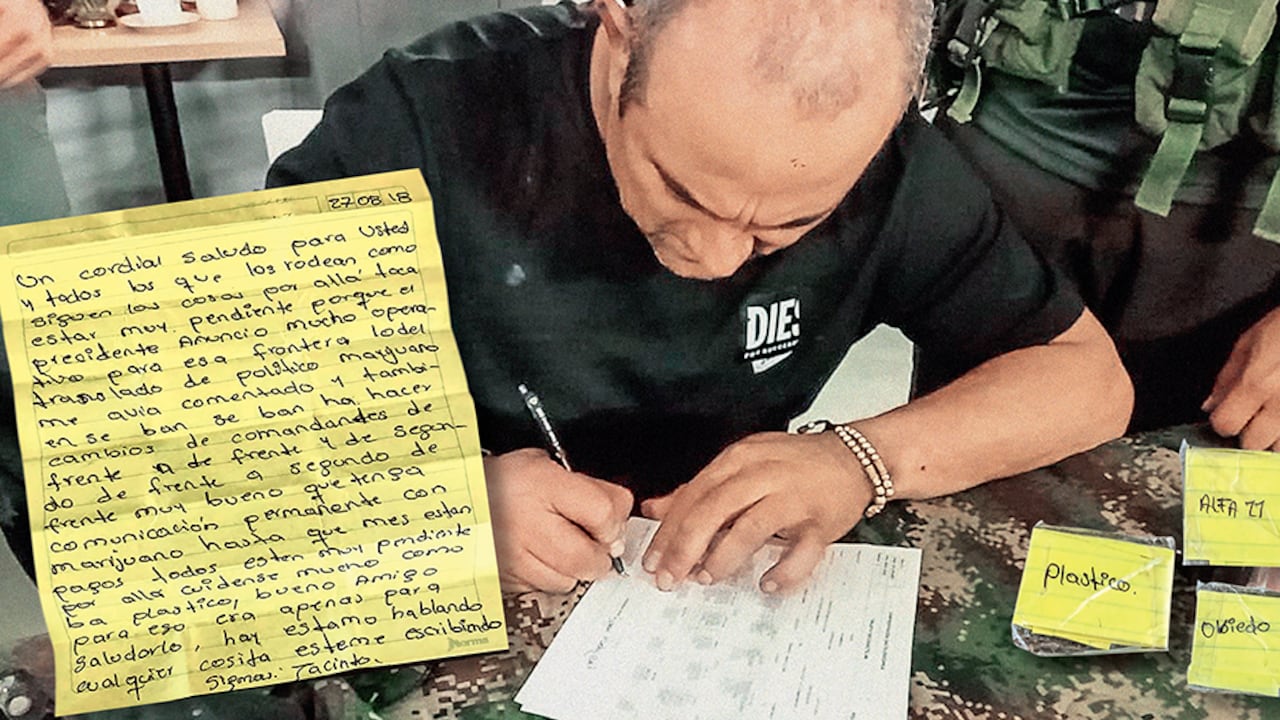 27 08 18
Un cordial saludo para Usted
y todos los que los rodean como
siguen las cosas por allá toca
estar muy pendiente porque el
presidente Anuncio mucho opera-
tivo para esa frontera lo del
translado de politico marjuano
me avia comentado y tambi-
en se ban se ban ha hacer
cambios de comandantes de
frente a de frente y de segon-
do de frente a segundo de
frente muy bueno que tenga
comunicación permanente con
marijuano hasta que mes estan
pagos todos esten muy pendiente
por alla cuidense mucho como
ba plastico, bueno Amigo
para eso era apenas para
saludarlo, hay estamo hablando
cualquier cosita esteme escribiendo
Sigma. Jacinto.
norma
DIES
plastico.
ALFA 11
Obiedo